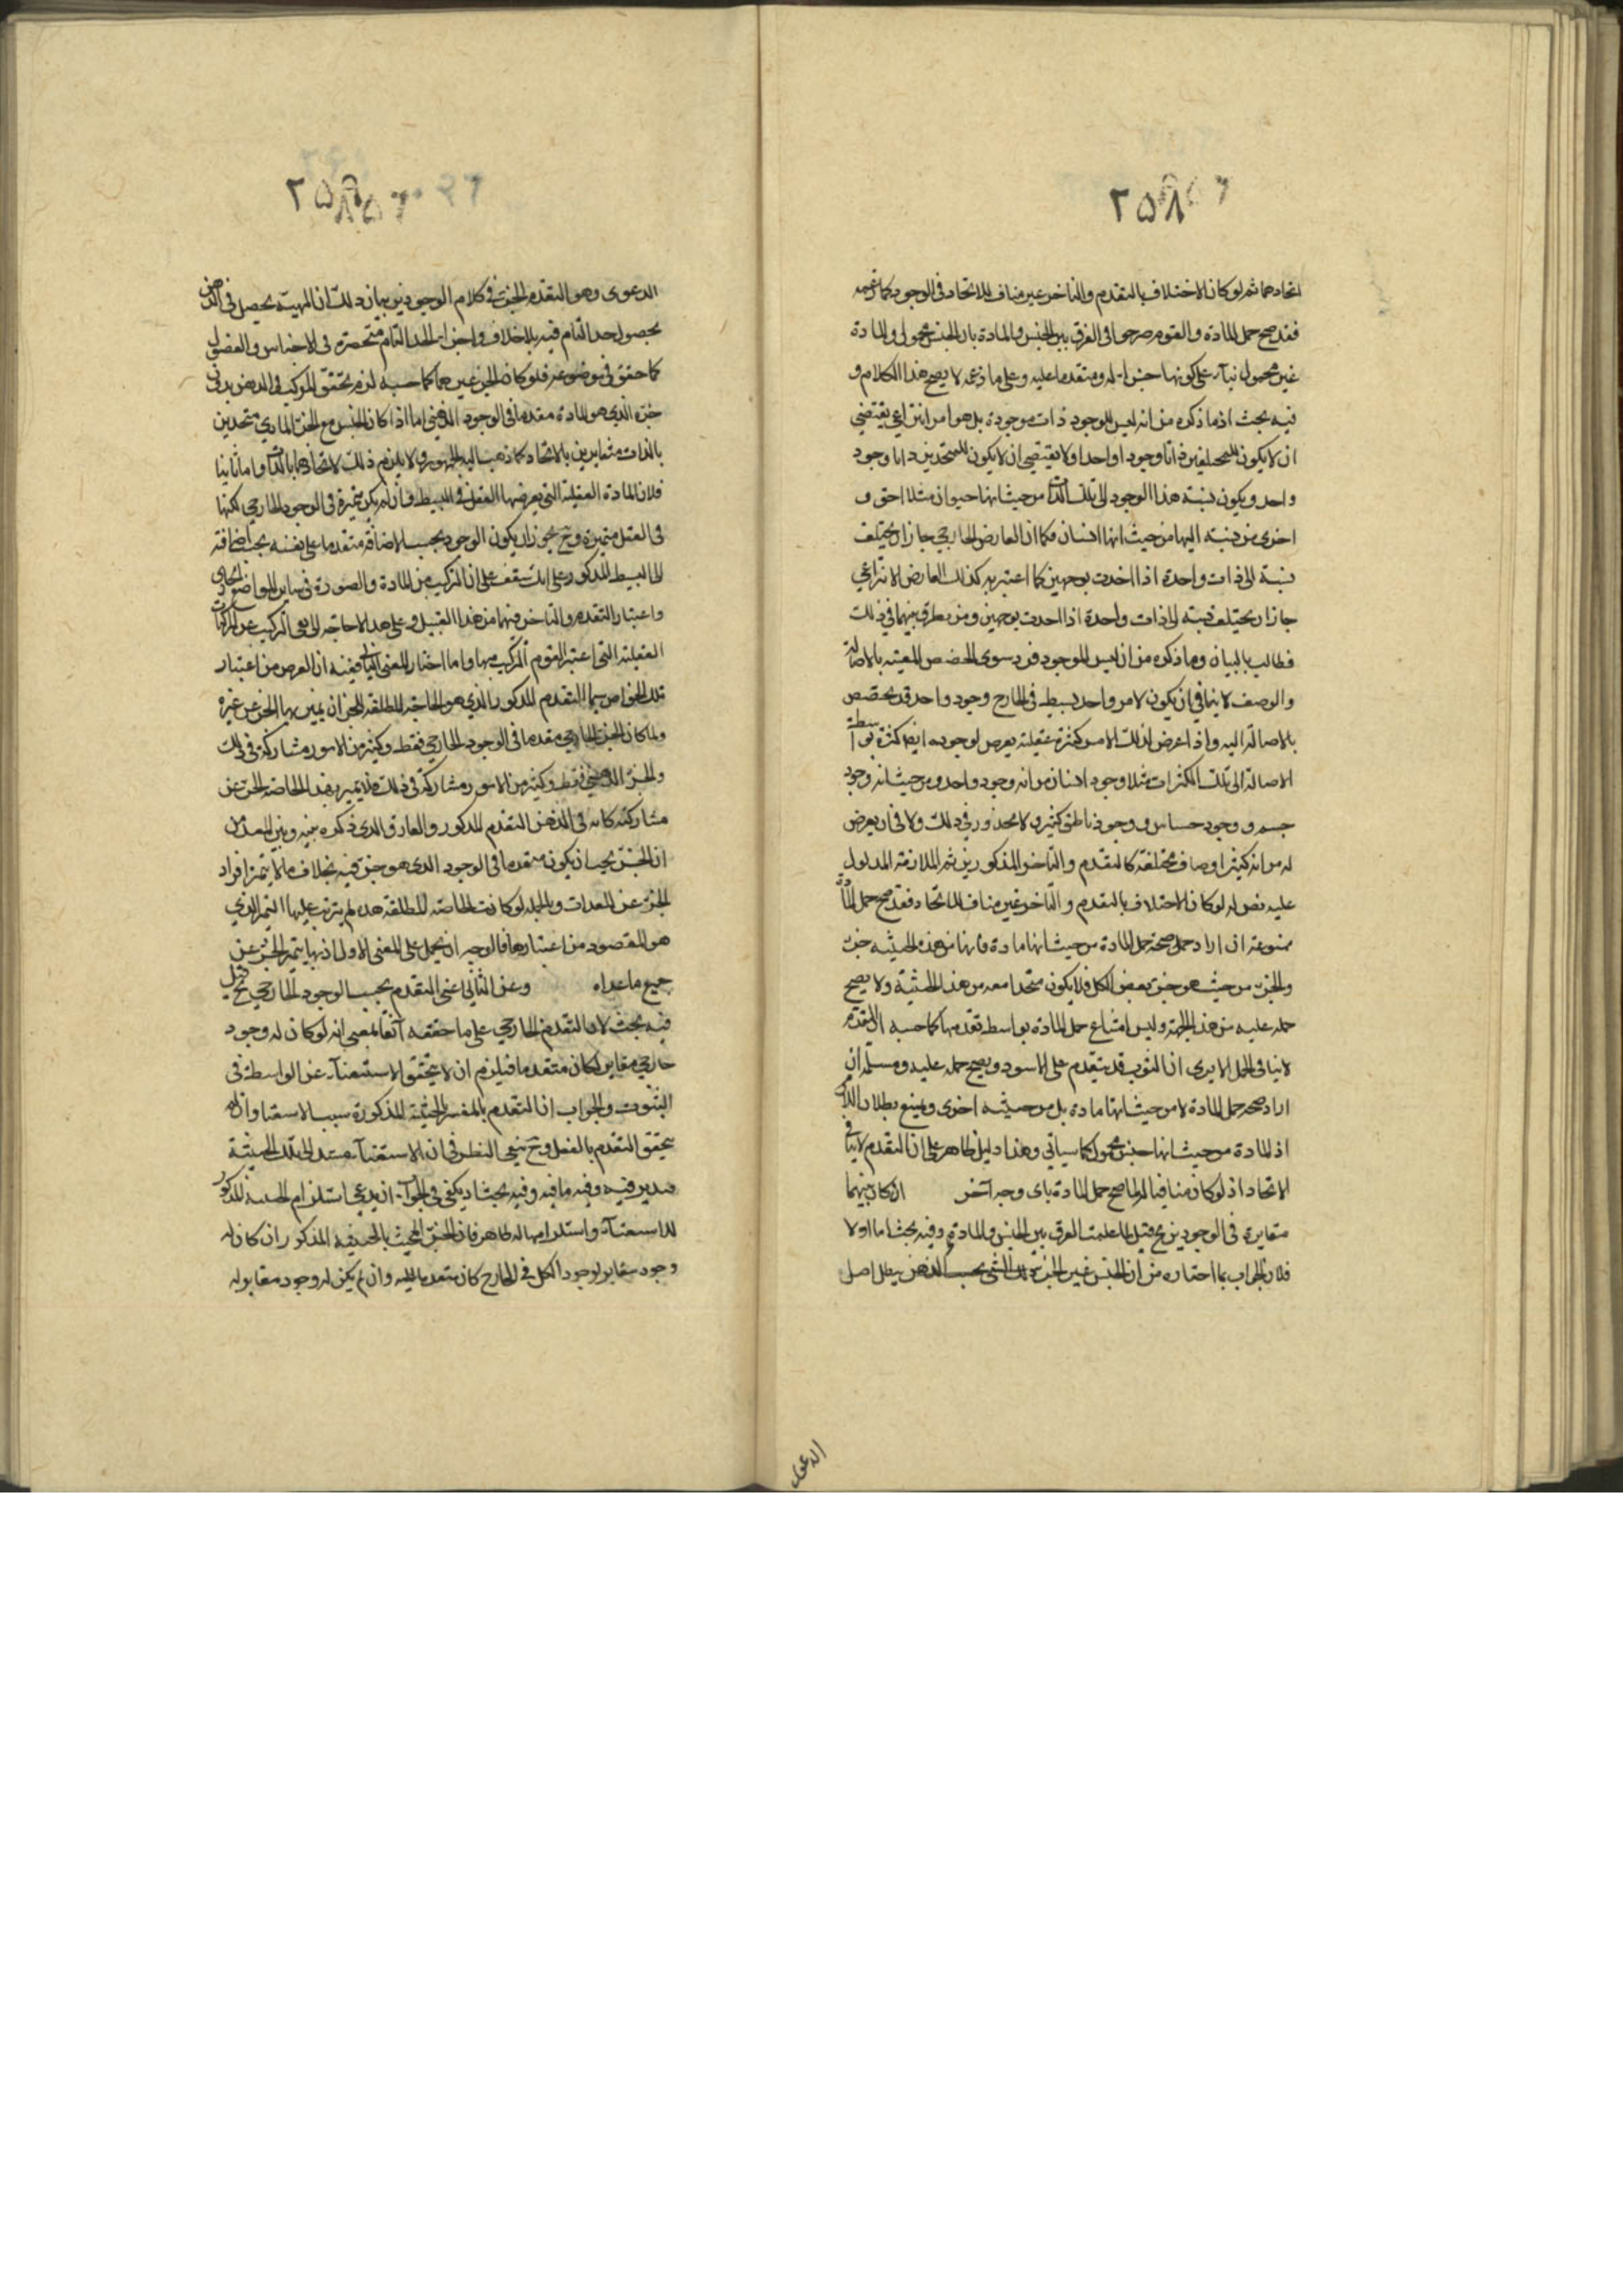 ٢٥٨
اتحادهما ثم لو كان الاختلاف بالتقدم والتاخر غير مناف للاتحاد فى الوجود كما زعمه
فقد صح حمل المادة والقوم صرحوا فى الفرق بين الجنس والمادة بان الجنس محمول والمادة
غير محمول بناء على كونها جزءا له ومتقدما عليه وعلى ما زعمه لا يصح هذا الكلام و
فيه بحث اذ ما ذكره من انه ليس للوجود ذات موجودة بل هو امر انتزاعي يقتضي
ان لا يكون للمختلفين ذاتا وجودا واحدا ولا يقتضي ان لا يكون للمتحدين ذاتا وجود
واحد ويكون نسبة هذا الوجود الى تلك الذات من حيث انها حيوان مثلا احق و
اخرى من نسبته اليها من حيث انها انسان فكما ان العارض الخارجي جاز ان يختلف
نسبته الى ذات واحدة اذا اخذت بوجهين كما اعتبر به كذلك العارض الانتزاعي
جاز ان يختلف نسبته الى ذات واحدة اذا اخذت بوجهين ومن يفرق بينهما في ذلك
فطالب بالبيان وما ذكره من ان ليس للوجود فرد سوى الحصص المعينه بالاضافة
والوصف لا ينافي ان يكون لامر واحد بسيط فى الخارج وجود واحد قد يخصص
بالاضافة اليه واذا عرض لذلك الامر كثرة عقلية يعرض لوجوده ايضا كثرة بواسطة
الاضافة الى تلك الكثرات مثلا وجود انسان من انه وجود واحد ومن حيث انه وجود
جسم و وجود حساس و وجود ناطق كثير ولا محذور في ذلك ولا في ان يعرض
له من انه كثير اوصاف مختلفة كالتقدم والتاخر المذكورين ثم الملازمة المدلول
عليه بقوله لو كان الاختلاف بالتقدم والتاخر غير مناف للاتحاد فقد صح حمل المادة
ممنوعة ان اراد حمل صحة حمل المادة من حيث انها مادة فانها من هذه الحيثيه جزء
والجزء من حيث هو جزء بعض الكل فلا يكون متحدا معه من هذه الحيثية ولا يصح
حمله عليه من هذه الجهة وليس امتناع حمل المادة بواسطه تقدمها كما حسبه اذ التقدم
لا ينافى الحمل الا يرى ان الثوب قد يتقدم على الاسود ويصح حمله عليه ومسلمة ان
اراد صحة حمل المادة لا من حيث انها مادة بل من حيثيه اخرى ويمنع بطلان اللازم
اذ المادة من حيث انها جنس محمول كما سياتي وهذا دليل ظاهر على ان التقدم لا ينافى
الاتحاد اذ لو كان منافيا له لما صح حمل المادة باى وجه اخر ان كان بينهما
مغايرة فى الوجودين ح قيل لما علمت الفرق بين الجنس والمادة وفيه بحث اما اولا
فلان الجواب بما اختاره من ان الجنس غير الجزء بحسب الذهن يبطل اصل
الدعوى
٢٥٨
الدعوى وهو التقدم الجزء فى كلام الوجودين بيان ذلك ان المهية يحصل فى الذهن
بحصول حد التام فيه بلا خلاف واجزاء الحد التام منحصرة فى الاجناس والفصول
كما حقق فى موضوعه فلو كان الجزء غيرهما كما حسبه لزم تحقق المركب فى الذهن بدون
جزءه الذي هو المادة مقدما فى الوجود الذهني اما اذا كان الجنس مع الجزء المادي متحدين
بالذات متغايرين بالاتحاد كما ذهب اليه الجمهور فلا يلزم ذلك لاتحادهما بالذات واما ثانيا
فلان المادة العقلية التي يعرضها العقل فى البسيط وان لم يكن متميزة فى الوجود الخارجي لكنها
فى العقل متميزة وح يجوز ان يكون الوجود بحسب الاضافة متقدما على نفسه بحسب اضافته
الى البسيط المذكور على انك ستقف على ان التركيب من المادة والصورة فى ساير المواضع
واعتبار التقدم والتاخر فيهما من هذا القبيل وعلى هذا لا حاجة الى نفى التركيب عن المركبات
العقلية التى اعتبر القوم التركيب فيها واما اختار المعنى الثانى ففيه ان الغرض من اعتبار
تلك الخواص سيما التقدم المذكور الذي هو الخاصة المطلقة للجزء ان يميز بها الجزء عن غيره
ولما كان الجزء الخارجي مقدما فى الوجود الخارجي فقط وكثير من الامور مشاركة فى ذلك
والجزء الذهني فقط وكثير من الامور مشاركة فى ذلك فلا يتميز بهذه الخاصة الجزء عن
مشاركته كما فى الذهن التقدم المذكور والفارق الذى ذكره بينه وبين المعدات
ان الجزء يجب ان يكون متقدما فى الوجود الذى هو جزء فيه بخلاف ما لا يتميز افراد
الجزء عن المعدات وبالجملة لو كانت الخاصة المطلقة هذه لم يترتب عليها الثمر الذي
هو المقصود من اعتبارها فالوجه ان يحمل على المعنى الاول اذ بها يتميز الجزء عن
جميع ما عداه وعن الثانى اعنى التقدم بحسب الوجود الخارجي ح قيل
فيه بحث لان التقدم الخارجي على ما حققه آنفا بمعنى انه لو كان له وجود
خارجي مغاير لكان متقدما فيلزم ان لا يتحقق الاستغناء عن الواسطة فى
الثبوت والجواب ان التقدم بالمفسر الحيثية المذكورة سبب الاستغنا وان لم
يتحقق التقدم بالفعل وح ينبغي النظر فى ان الاستغناء يستند الى تلك الحيثية
فتدبر فيه وفيه ما فيه وفيه بحث اذ يكفى فى الجواب ان يدعى استلزام الحيثية المذكورة
للاستغناء واستلزامها له ظاهر فان الجزء المحيث بالحيثية المذكور ان كان له
وجود مغاير لوجود الكل فى الخارج كان متقدما عليه وان لم يكن له وجود مغاير له